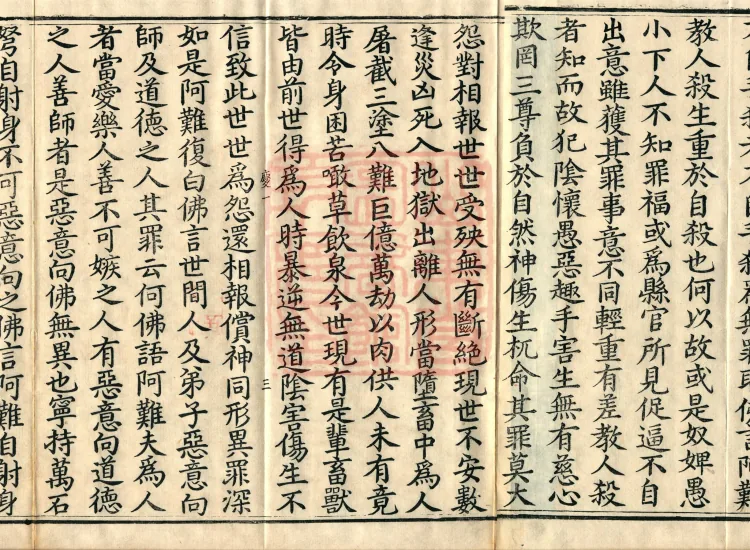 無罪耶佛言阿難
教人殺生重於自殺也何以故或是奴婢愚
小下人不知罪福或爲縣官所見促逼不自
出意雖獲其罪事意不同輕重有差教人殺
者知而故犯陰懷愚惡趣手害生無有慈心
欺罔三尊負於自然神傷生杌命其罪莫大
怨對相報世世受殃無有斷絶現世不安數
逢災凶死入地獄出離人形當墮畜中爲人
屠截三塗八難巨億萬劫以肉供人未有竟
時令身困苦噉草飲泉今世現有是輩畜獸
皆由前世得爲人時暴逆無道陰害傷生不
三
信致此世世爲怨還相報償神同形異罪深
如是阿難復白佛言世間人及弟子惡意向
師及道德之人其罪云何佛語阿難夫爲人
者當愛樂人善不可嫉之人有惡意向道德
之人善師者是惡意向佛無異也寧持萬石
弩自射身不可惡意向之佛言阿難自射身